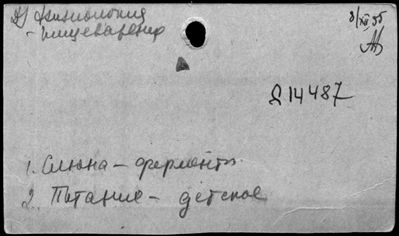 Д) Физиология
- пищеварение
8/XII 55
Я14487
1. Слюна – ферменты
2. Питание – детское